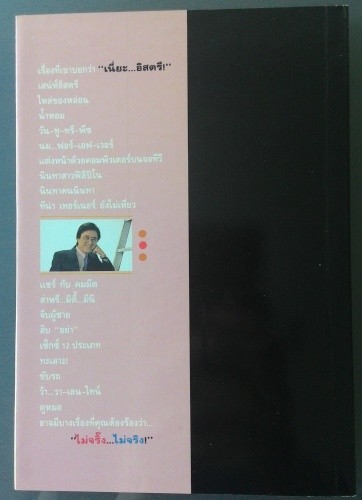 เรื่องที่เขาบอกว่า "เนี่ยะ...อิสตรี!"
เสน่ห์อิสตรี
ไหล่ของหล่อน
น้ำหอม
วัน-ทู-ทรี-พีซ
นม...ฟอร์-เอฟ-เวอร์
แต่งหน้าด้วยคอมพิวเตอร์บนจอทีวี
นินทาสาวฟิลิปิโน
นินทาคนนินทา
ทีน่า เทอร์เนอร์ ยังไม่เหี่ยว
แชร์ กับ คมมีด
สาหรี่...มิดี้...มินิ
จีบผู้ชาย
สิบ "อย่า"
เซ็กซ์ 12 ประเภท
ทะเลาะ!
ขับรถ
ว้า...วา-เลน-ไทน์
ดูหมอ
อาจมีบางเรื่องที่คุณต้องร้องว่า...
"ไม่จริ๊ง...ไม่จริง!"